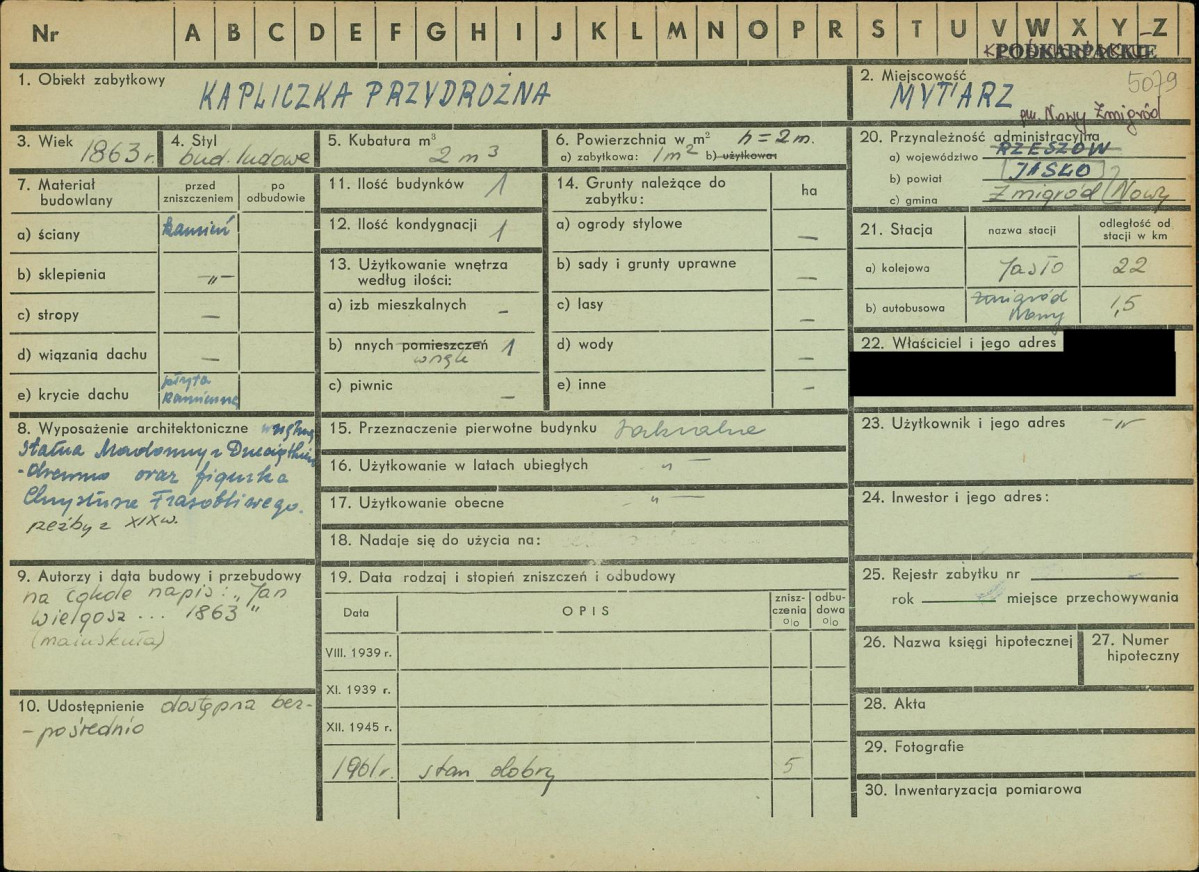 Nr A B C D E F G H I J K L M N O P R S T U V W X Y Z
PODKARPACKIE
1. Obiekt zabytkowy KAPLICZKA PRZYDROŻNA
2. Miejscowość 5079
MYTARZ
gm. Nowy Żmigród
3. Wiek 1863 r.
4. Styl bud. ludowe
5. Kubatura m³ 2 m³
6. Powierzchnia w m² h = 2 m.
a) zabytkowa: 1 m² b) użytkowa:
7. Materiał budowlany
przed zniszczeniem
po odbudowie
a) ściany kamień
b) sklepienia —„—
c) stropy —
d) wiązania dachu —
e) krycie dachu płyta kamienna
8. Wyposażenie architektoniczne wnętrza
Statua Madonny z Dzieciątkiem
-drewno oraz figurka
Chrystusa Frasobliwego.
rzeźby z XIX w.
9. Autorzy i data budowy i przebudowy
na cokole napis: „Jan
Wielgosz ... 1863"
(majuskuła)
10. Udostępnienie dostępna bez-
-pośrednio
11. Ilość budynków 1
12. Ilość kondygnacji 1
13. Użytkowanie wnętrza
według ilości:
a) izb mieszkalnych —
b) nnych pomieszczeń 1
wnęk
c) piwnic —
14. Grunty należące do
zabytku:
ha
a) ogrody stylowe —
b) sady i grunty uprawne —
c) lasy —
d) wody —
e) inne —
15. Przeznaczenie pierwotne budynku sakralne
16. Użytkowanie w latach ubiegłych „ —
17. Użytkowanie obecne „ —
18. Nadaje się do użycia na:
19. Data rodzaj i stopień zniszczeń i odbudowy
Data
OPIS
znisz-
czenia
o|o
odbu-
dowa
o|o
VIII. 1939 r.
XI. 1939 r.
XII. 1945 r.
1961 r. stan dobry 5
20. Przynależność administracyjna
a) województwo RZESZÓW
b) powiat JASŁO
c) gmina Żmigród Nowy
21. Stacja
nazwa stacji
odległość od
stacji w km
a) kolejowa Jasło 22
b) autobusowa Żmigród Nowy 1,5
22. Właściciel i jego adres
23. Użytkownik i jego adres —„—
24. Inwestor i jego adres:
25. Rejestr zabytku nr
rok miejsce przechowywania
26. Nazwa księgi hipotecznej
27. Numer
hipoteczny
28. Akta
29. Fotografie
30. Inwentaryzacja pomiarowa